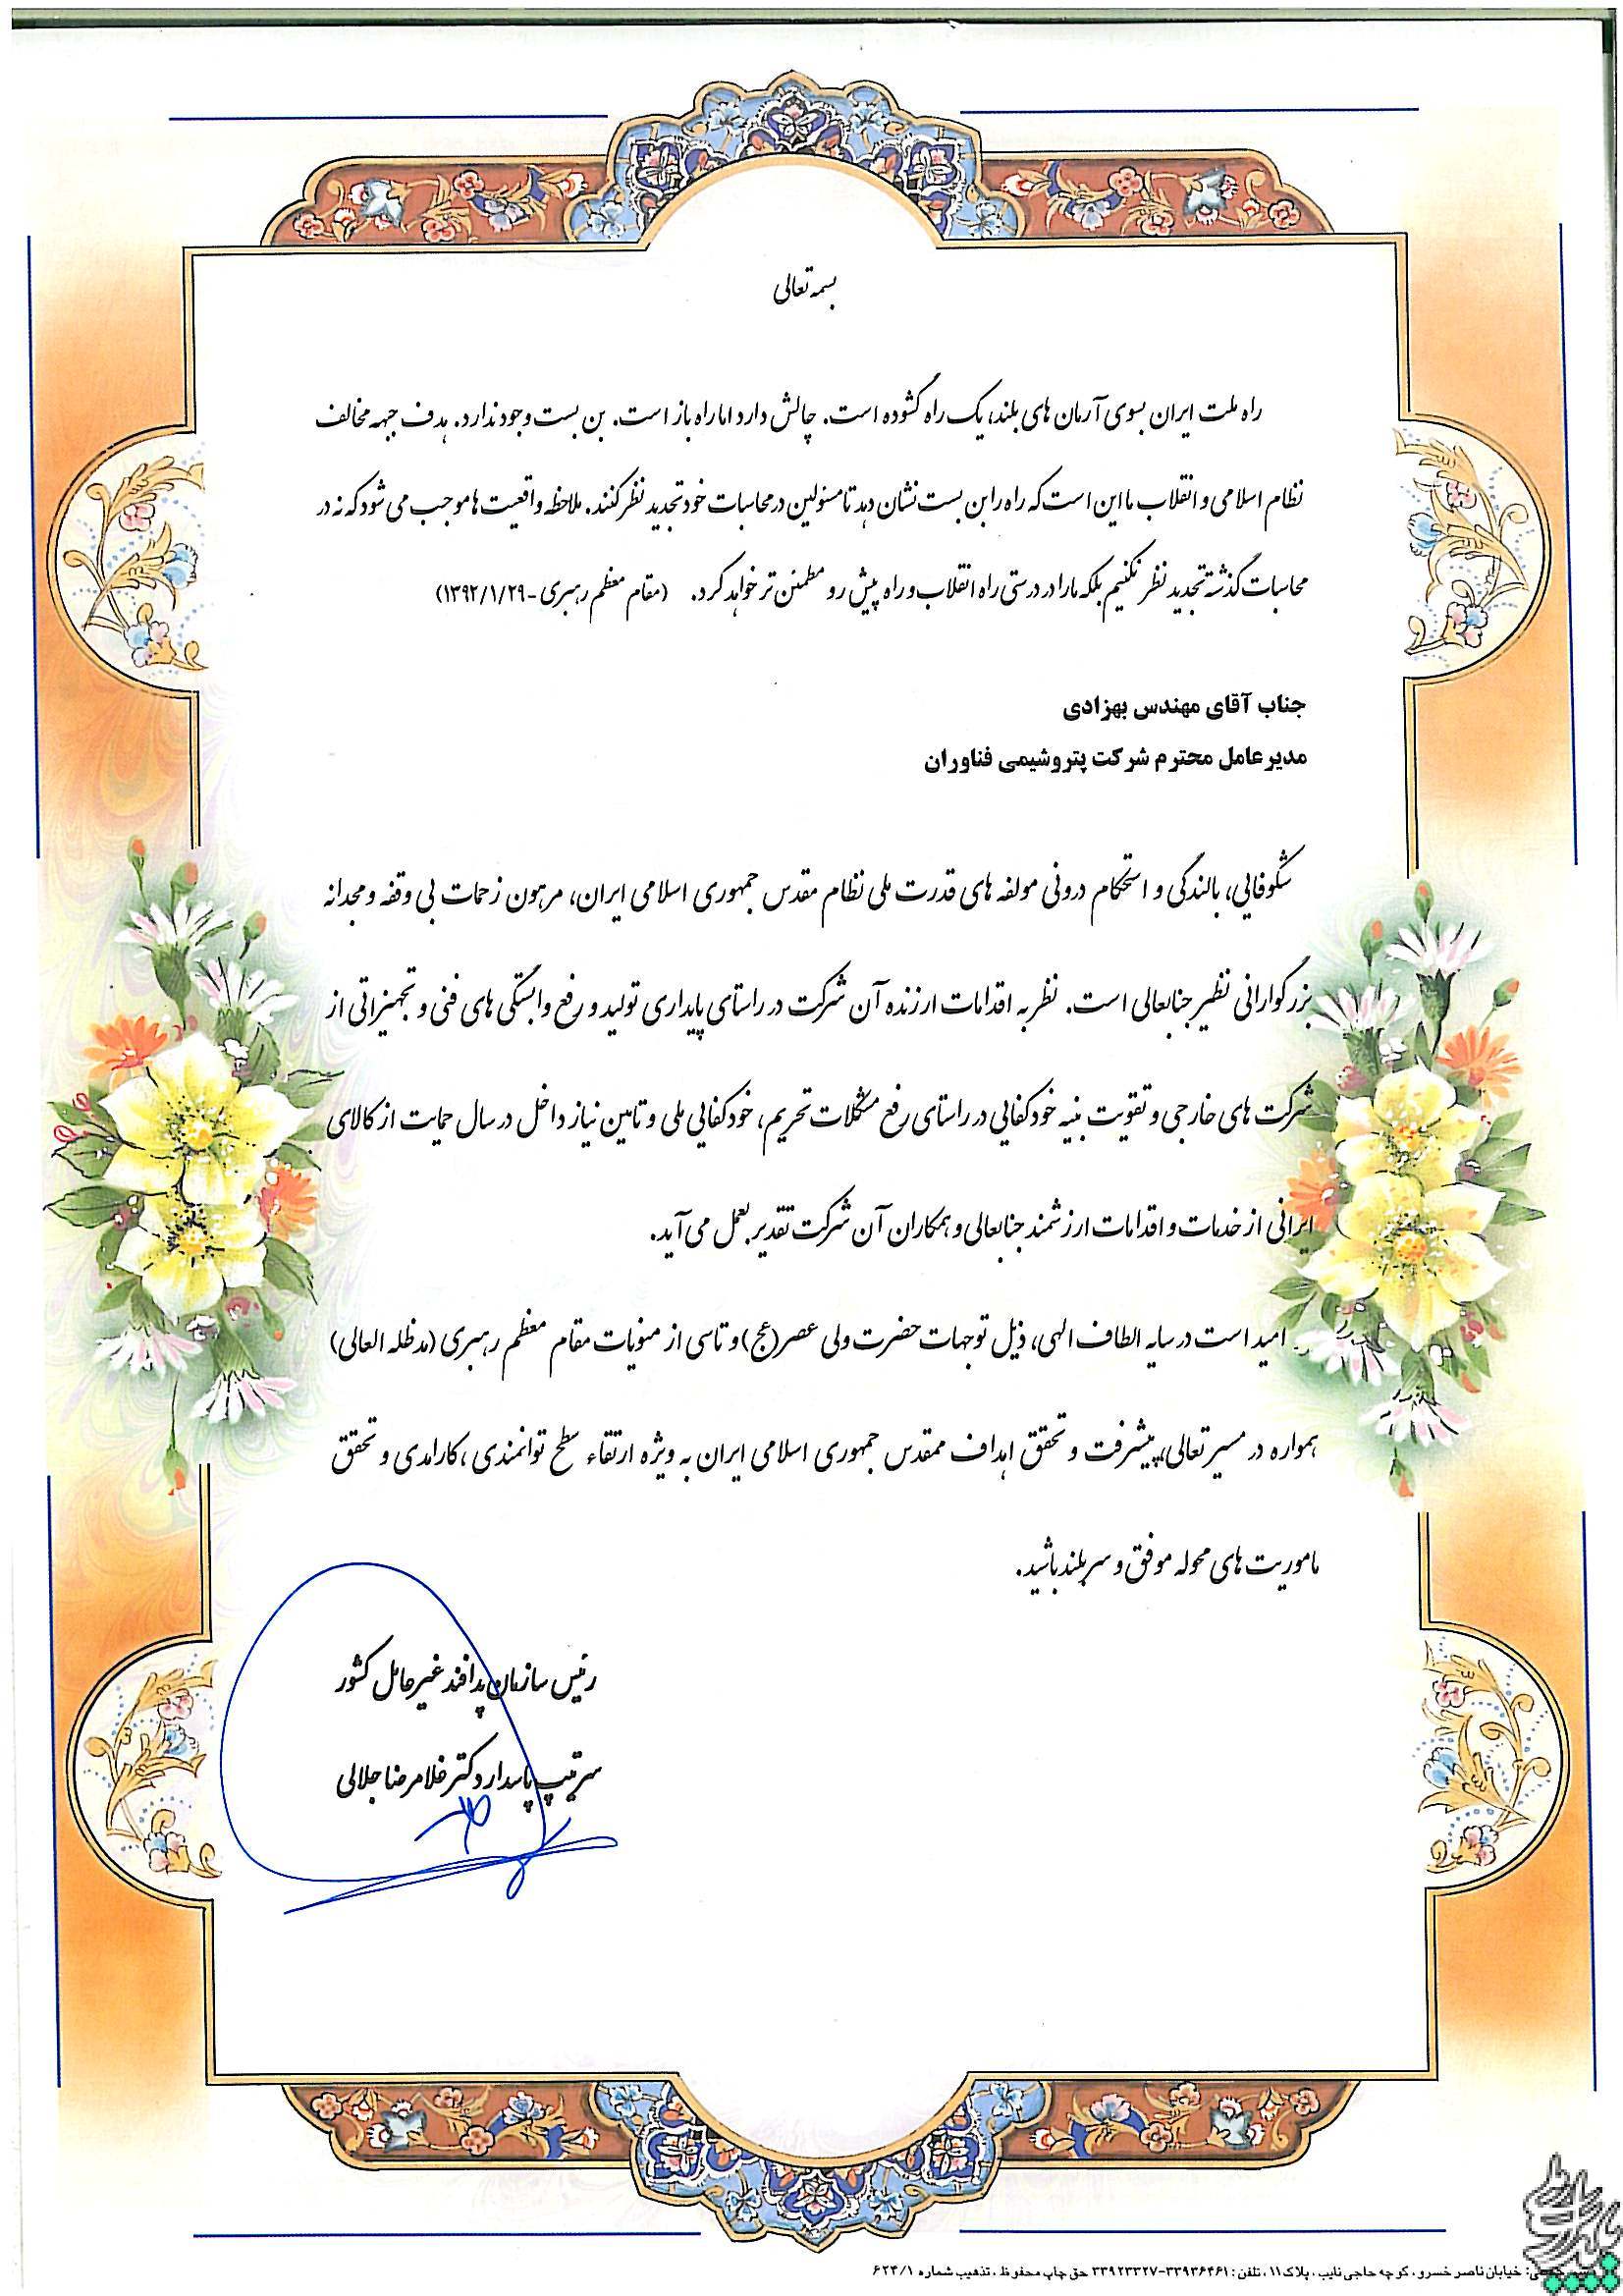 بسمه تعالی
راه ملت ایران بسوی آرمان های بلند، یک راه گشوده است. چالش دارد اما راه باز است. بن بست وجود ندارد. هدف جبهه مخالف
نظام اسلامی و انقلاب ما این است که راه را بن بست نشان دهد تا مسئولین در محاسبات خود تجدید نظر کنند. ملاحظه واقعیت ها موجب می شود که نه در
محاسبات گذشته تجدید نظر نکنیم بلکه ما را در درستی راه انقلاب و راه پیش رو مطمئن تر خواهد کرد. (مقام معظم رهبری -۱۳۹۲/۱/۲۹)
جناب آقای مهندس بهزادی
مدیرعامل محترم شرکت پتروشیمی فناوران
شکوفایی، بالندگی و استحکام درونی مولفه های قدرت ملی نظام مقدس جمهوری اسلامی ایران، مرهون زحمات بی وقفه و مجدانه
بزرگوارانی نظیر جنابعالی است. نظر به اقدامات ارزنده آن شرکت در راستای پایداری تولید و رفع وابستگی های فنی و تجهیزاتی از
شرکت های خارجی و تقویت بنیه خودکفایی در راستای رفع مشکلات تحریم، خودکفایی ملی و تامین نیاز داخل در سال حمایت از کالای
ایرانی از خدمات و اقدامات ارزشمند جنابعالی و همکاران آن شرکت تقدیر بعمل می آید.
امید است در سایه الطاف الهی، ذیل توجهات حضرت ولی عصر(عج) و تاسی از منویات مقام معظم رهبری (مدظله العالی)
همواره در مسیر تعالی، پیشرفت و تحقق اهداف ممقدس جمهوری اسلامی ایران به ویژه ارتقاء سطح توانمندی ،کارامدی و تحقق
ماموریت های محوله موفق و سربلند باشید.
رئیس سازمان پدافند غیرعامل کشور
سرتیپ پاسدار دکتر غلامرضا جلالی
خیابان ناصر خسرو ، کوچه حاجی نایب ، پلاک ۱۱ ، تلفن : ۳۳۹۳۶۴۶۱-۳۳۹۲۳۳۲۷ حق چاپ محفوظ ، تذهیب شماره ۶۲۴/۱